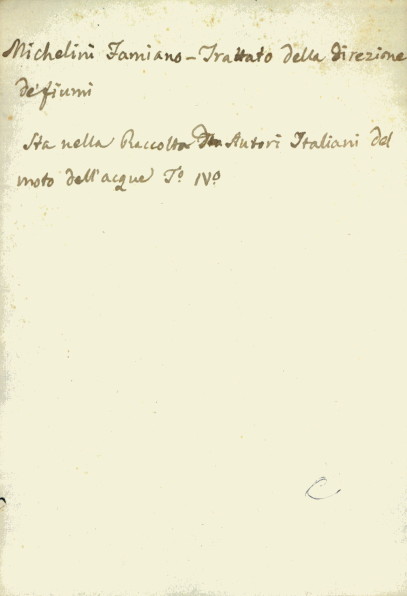 Michelini Famiano - Trattato della direzione
de' fiumi
Sta nella Raccolta Autori Italiani del
moto dell'acque T.º IV.º
C